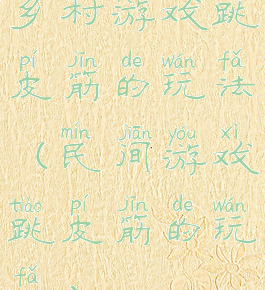 乡村游戏跳
pí jīn de wán fǎ
皮筋的玩法
mín jiān yóu xì
(民间游戏
tiào pí jīn de wán
跳皮筋的玩
fǎ